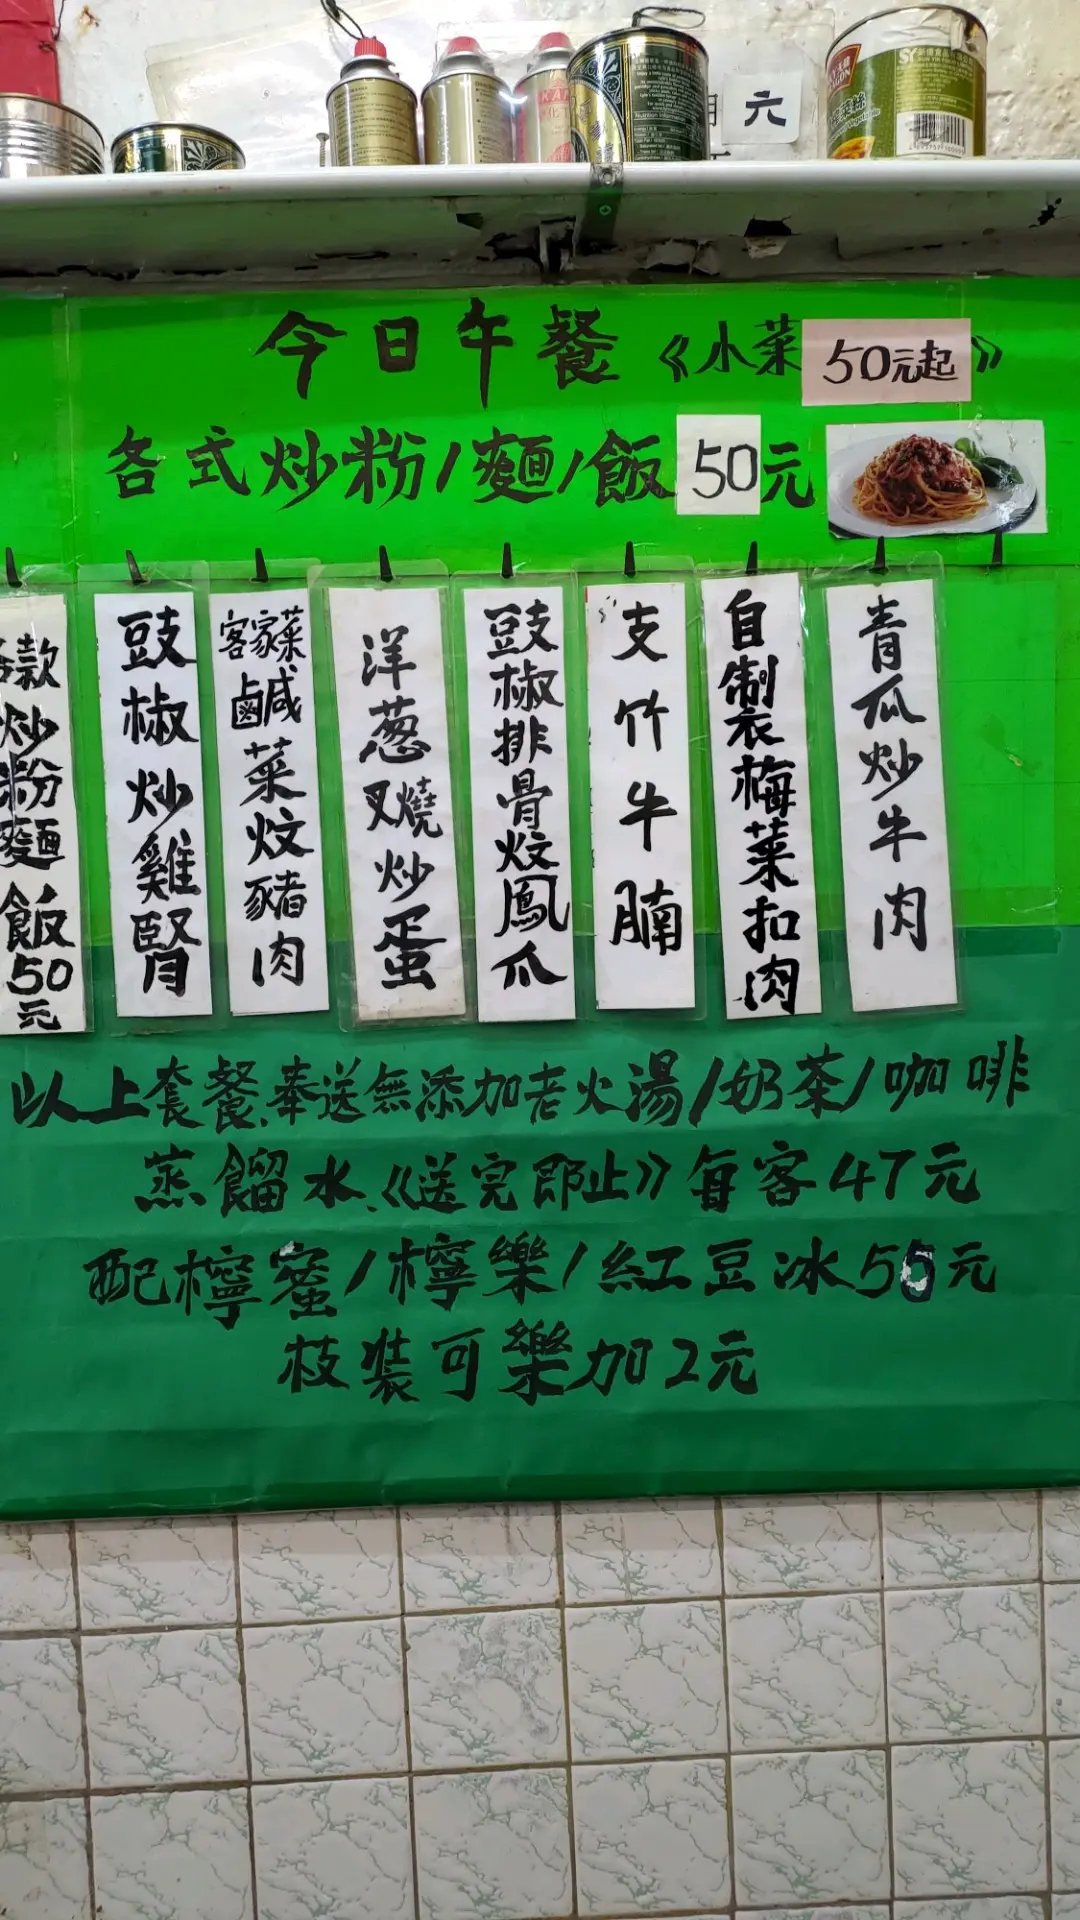 元
今日午餐《小菜50元起》
各式炒粉/麵/飯50元
青瓜炒牛肉
自制裳梅菜扣肉
支竹牛腩
豉椒排骨炆鳳爪
洋葱叉燒炒蛋
客家菜鹹菜炆豬肉
豉椒炒雞腎
款炒粉麵飯50元
以上套餐.奉送無添加老火湯/奶茶/咖啡
蒸餾水.《送完即止》每客47元
配檸蜜/檸樂/紅豆冰55元
枝裝可樂加2元